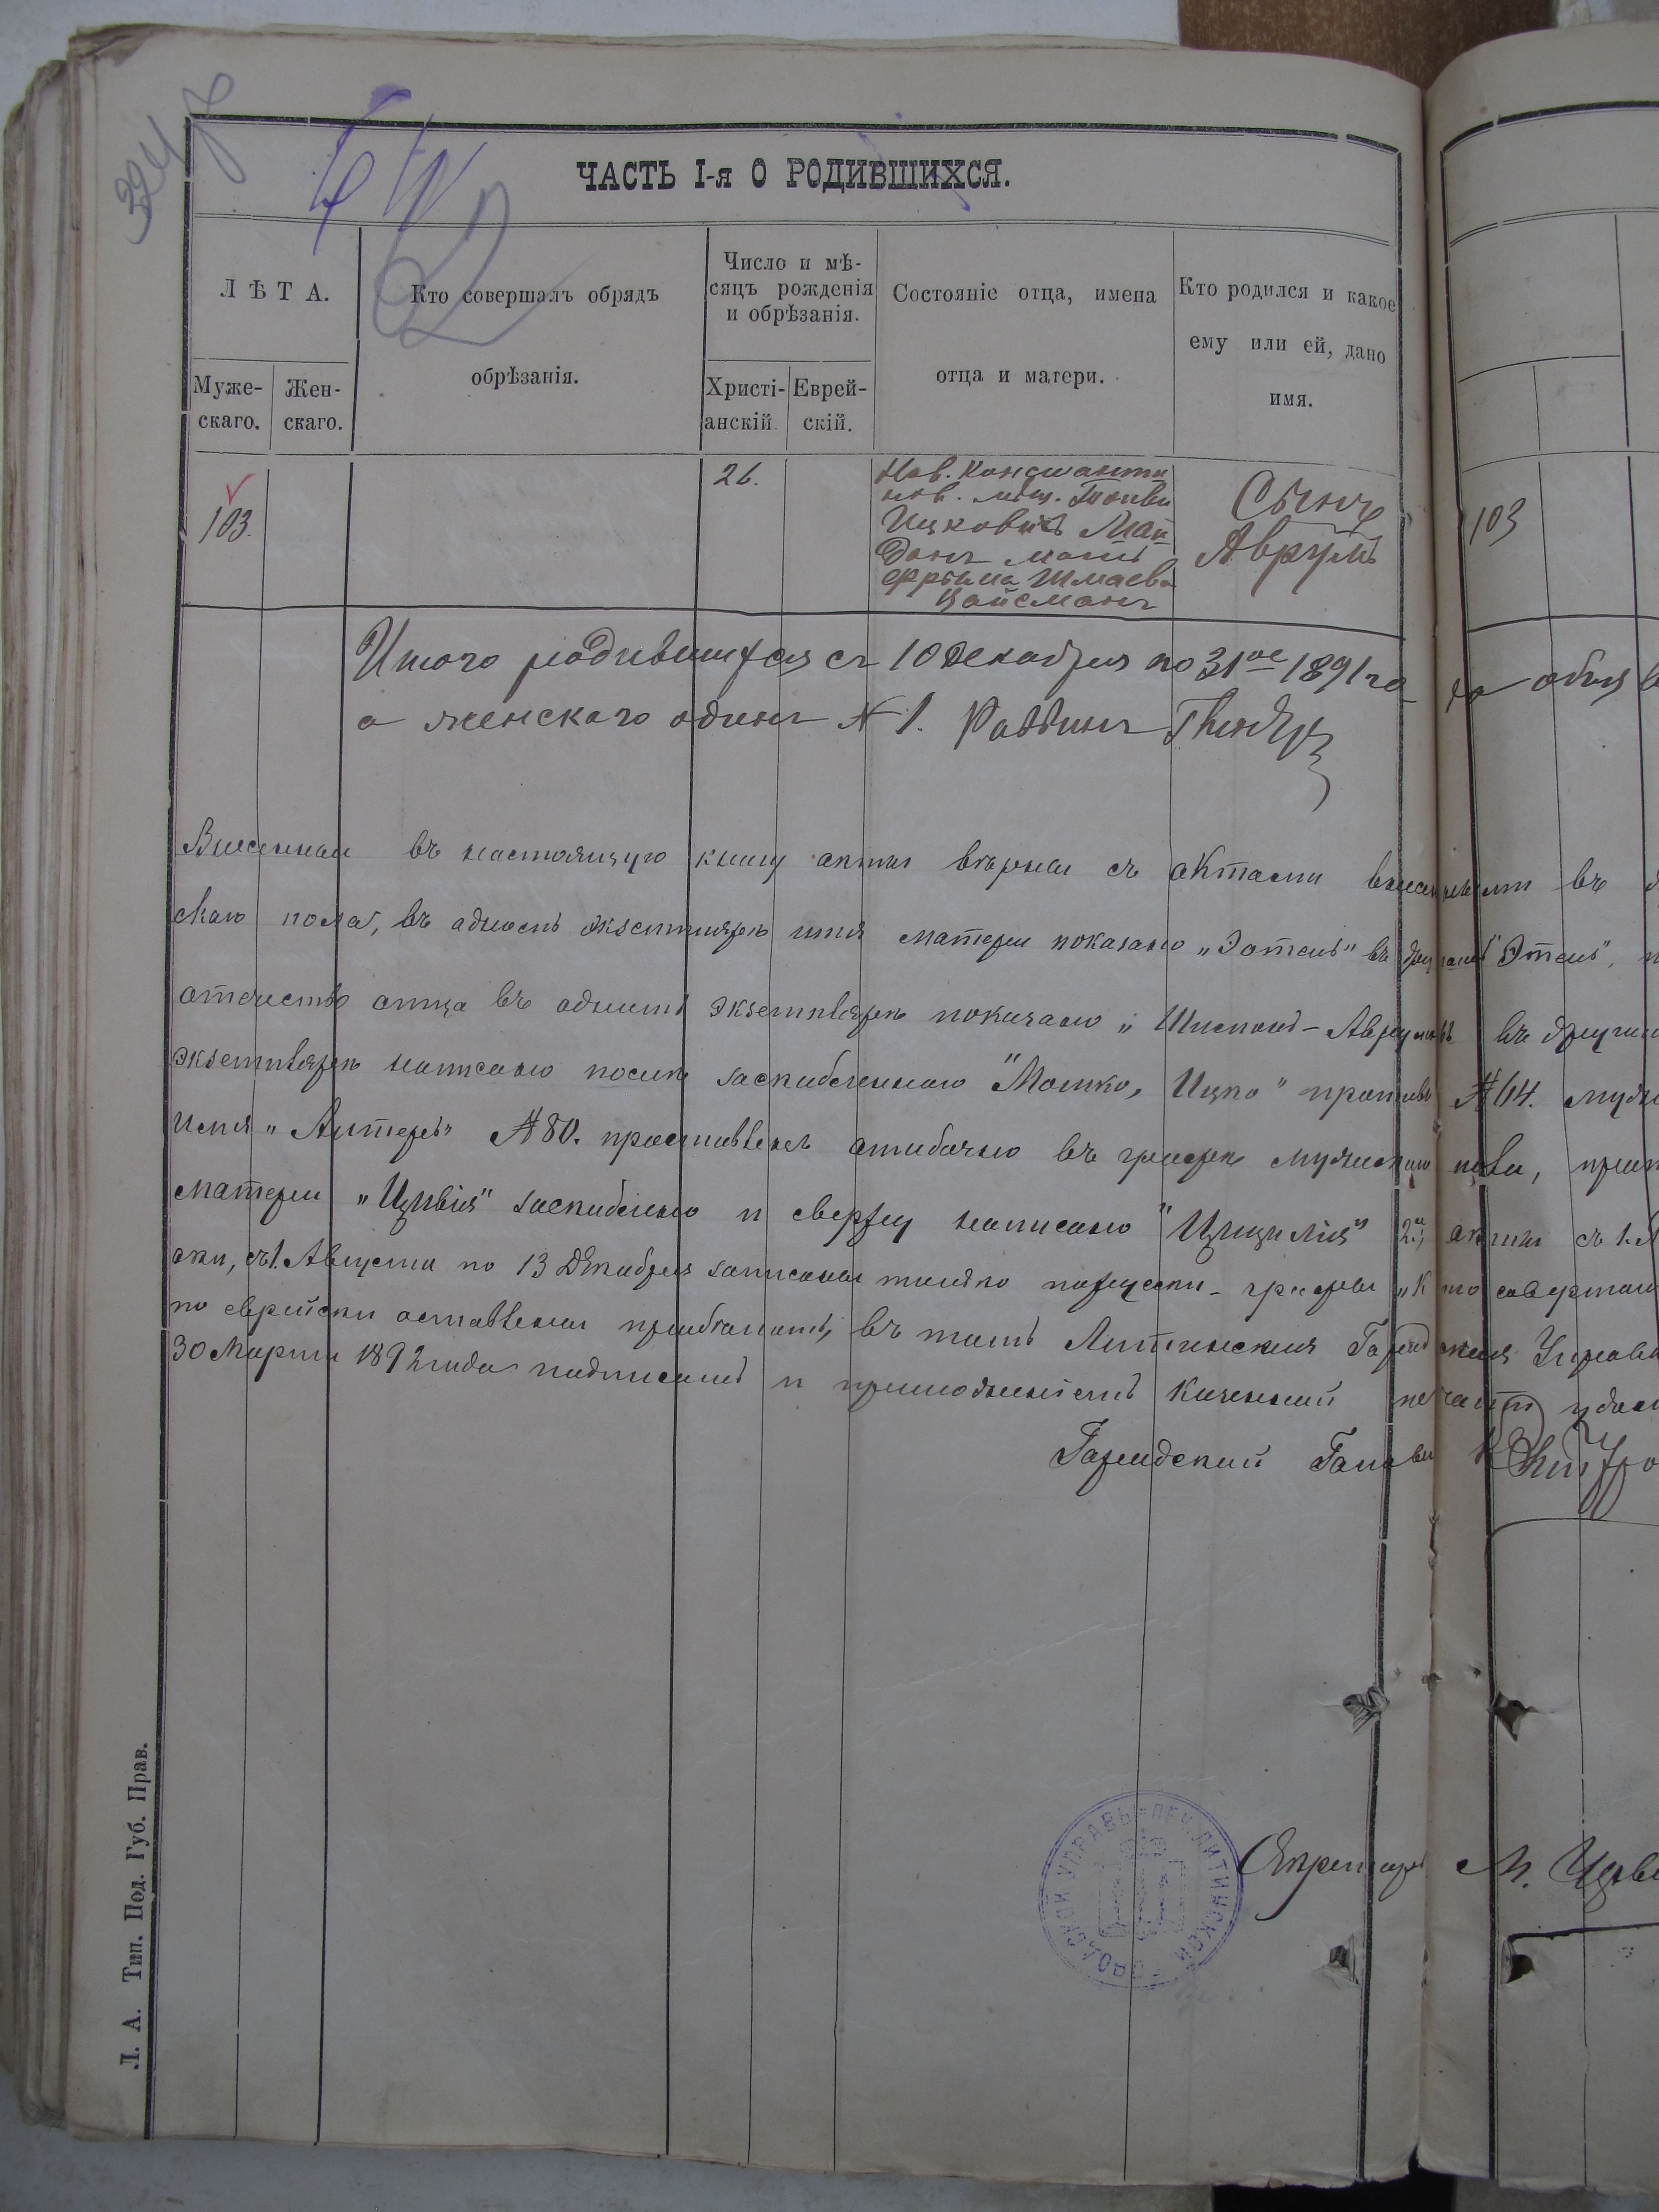 324
ЧАСТЬ I-я О РОДИВШИХСЯ.
ЛѢТА.
Муже-
скаго.
Жен-
скаго.
Кто совершалъ обрядъ
обрѣзанія.
Число и мѣ-
сяцъ рожденія
и обрѣзанія.
Христі-
анскій.
Еврей-
скій.
Состояніе отца, имена
отца и матери.
Кто родился и какое
ему или ей, дано
имя.
103.
26.
Нов. Константи
нов. мѣщ.
Ицковичъ Май
данъ мать
Фрыма Шмаева
Вайсманъ
Сынъ
Аврумъ
103
Итого родившихся съ 10 Декабря по 31ое 1891 го
а женского одинъ № 1. Раввинъ
Внесенные въ настоящую книгу акты вѣрны съ актами внесенными въ
скаго пола, въ одномъ экземплярѣ имя матери показано „Эотель" въ другомъ „Этель",
отчество отца въ одномъ экземплярѣ показано Аврумовъ въ другомъ
экземплярѣ написано послѣ заскобленнаго "Мошко, Ицко" противъ № 64.
имя „Алтеръ" № 80. проставленъ ошибочно въ графѣ мужескаго пола,
матери „Цивія" заскоблено и сверху написано "Цицилія" акты съ 1.
съ 1. Августа по 13 Декабря записаны только порусски графы „Кто совершалъ
по еврейски оставлены пробѣломъ, въ томъ Литинская Городская Управа
30 Марта 1892 года подписомъ и приложеніемъ казенной печати
Городской Голова
Секретарь М.
ГОРОДСКОЙ УПРАВЫ ПЕЧ. ЛИТИНСКОЙ
Л. А. Тип. Под. Губ. Прав.